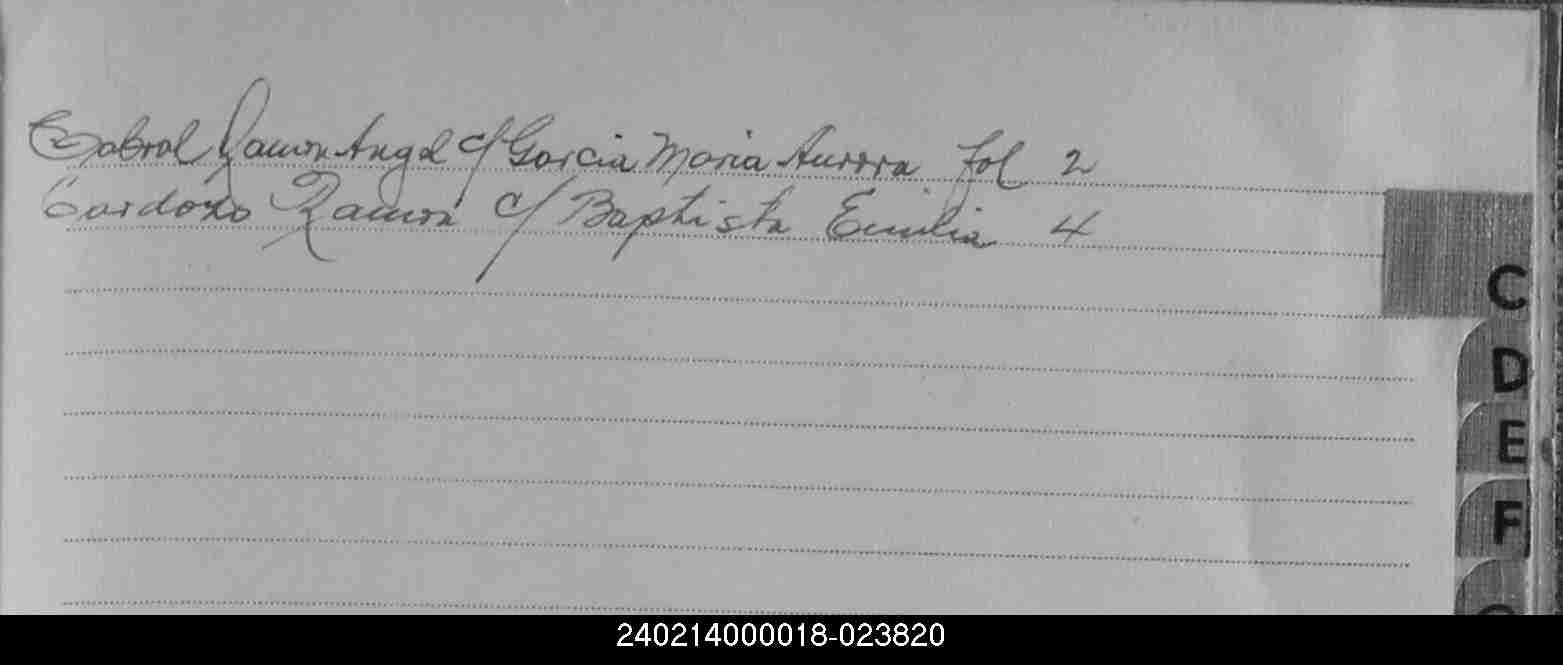 Cabral Ramon Angel c/ Garcia Maria Aurora fol 2
Cardozo Ramon c/ Baptista Emilia 4
C
D
E
F
240214000018-023820